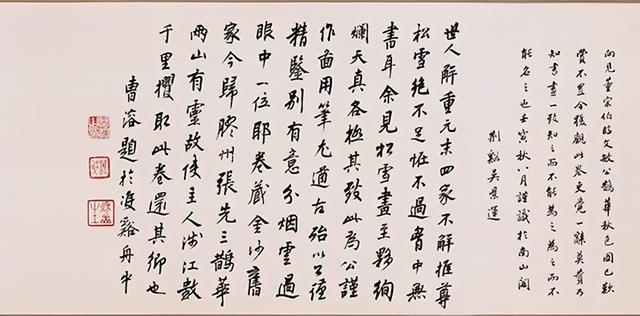 向見董宗伯臨文敏公鵲華秋色圖已歎
賞不置今獲觀此卷更覺一辭莫贊乃
知書畫一致知之而不能為之為之而不
能名之也壬寅秋八月謹識於南山閣
荊谿吳景運
世人解重元末四家不解推尊
松雪絶不足怪不過胷中無
書耳余見松雪畫至夥絢
爛天真各極其致此為公謹
作面用筆尤遒古殆以公謹
精鑒別有意分烟雲過
眼中一位耶卷藏金沙舊
家今歸膠州張先三鵲華
兩山有靈故使主人涉江數
千里攫取此卷還其鄉也
曹溶題於渡谿舟中